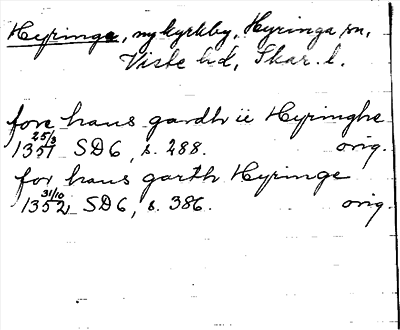 Hyringa, ny kyrkby, Hyringa sn,
Viste hd, Skar. l.
fore hans gardh ii Hyringhe
1351 25/3 SD 6, s. 288. orig.
for hans garth Hyringe
1352 31/10 SD 6, s. 386. orig.